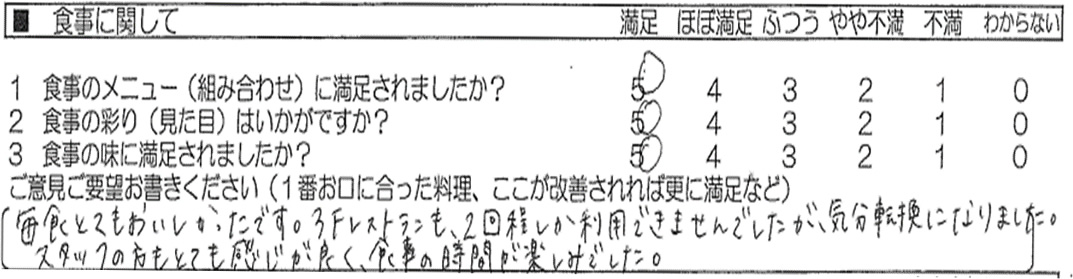 ■ 食事に関して 満足 ほぼ満足 ふつう やや不満 不満 わからない
1 食事のメニュー（組み合わせ）に満足されましたか？ 5 4 3 2 1 0
2 食事の彩り（見た目）はいかがですか？ 5 4 3 2 1 0
3 食事の味に満足されましたか？ 5 4 3 2 1 0
ご意見ご要望お書きください（１番お口に合った料理、ここが改善されれば更に満足など）
毎食とてもおいしかったです。3Fレストランも、2回程しか利用できませんでしたが、気分転換になりました。
スタッフの方もとても感じが良く、食事の時間が楽しみでした。